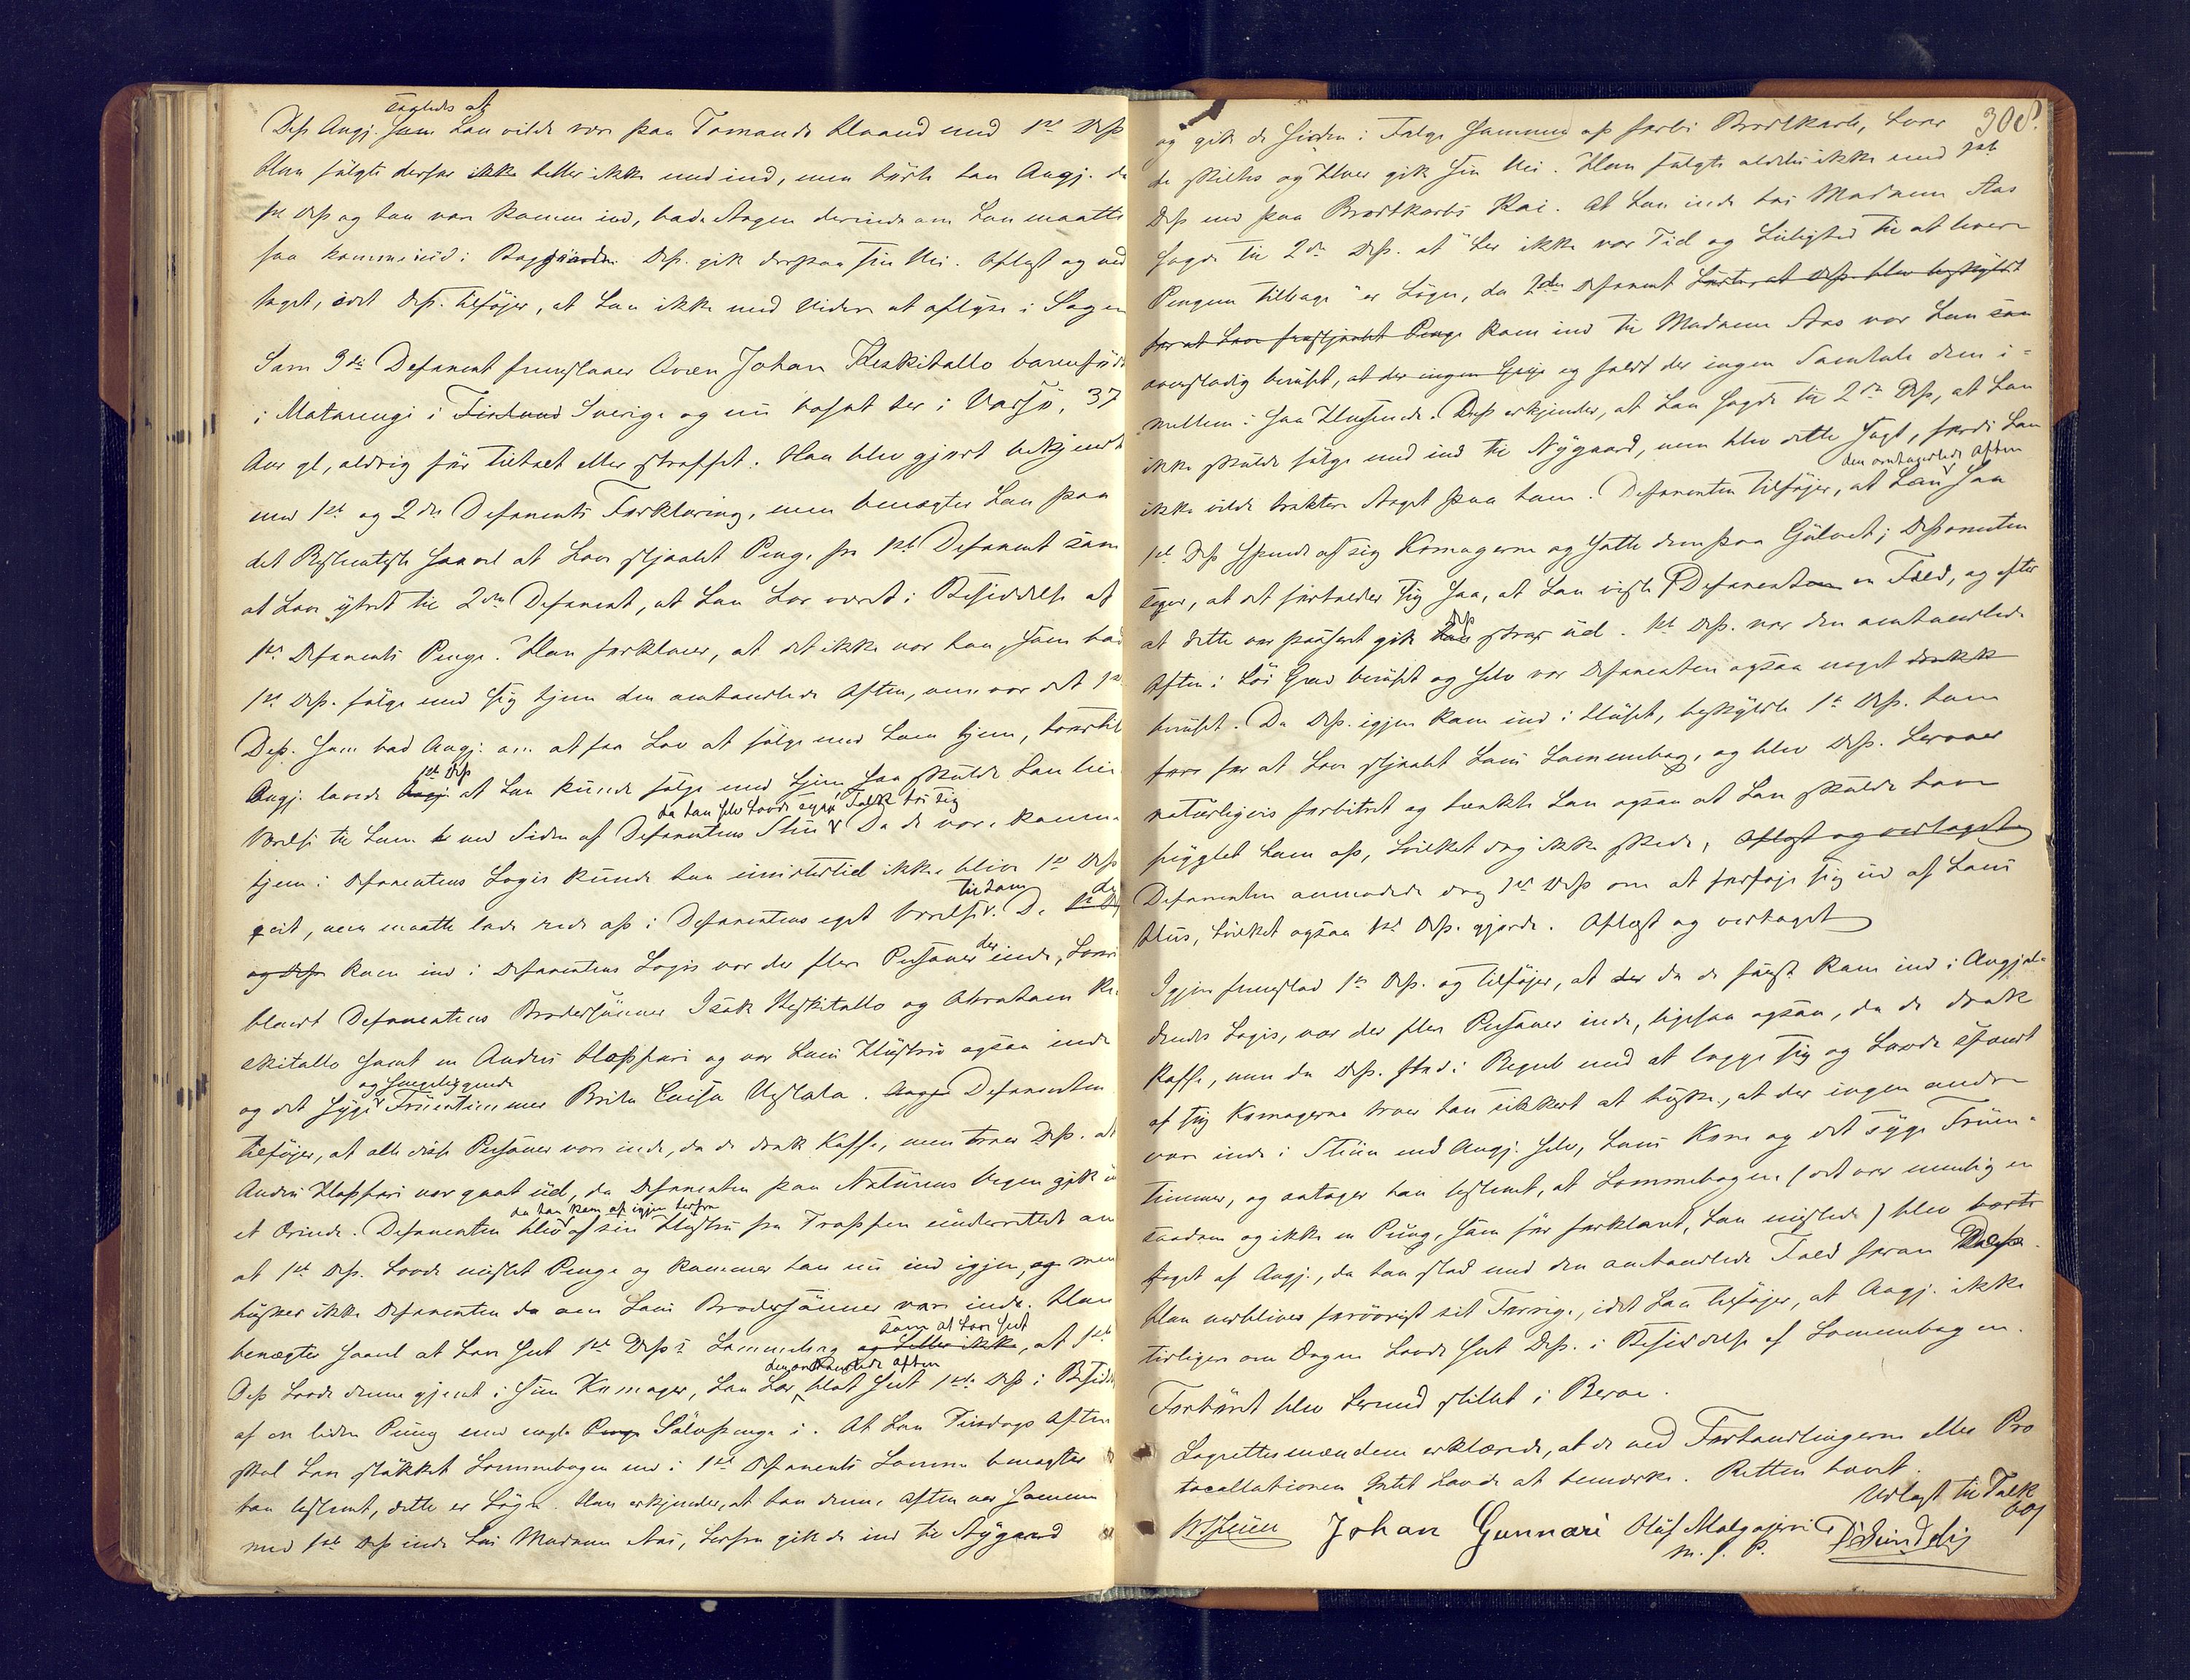 saaledes at
Dep. Angj. som han vilde var paa Tomands Haand med 1ste Dep
Han fulgte derfor ikke heller ikke med ind, men hørte han Angj. da
1st Dep og han var kommen ind, bade Angen derinde om han maatte
faa komme ind i Baggaarden Dep. gik derpaa sin Vei. Oplæst og ved
taget, idet Dep. tilføjer, at han ikke med Viden at oplyse i Sagen
Som 3die Deponent fremstaaer Qvæn Johan Keskitallo barnefødt
i Matarengi i Finland Sverige og nu bosat her i Vadsø, 37
Aar gl, aldrig før tiltalt eller straffet. Han blev gjort bekjendt
med 1ste og 2den Deponents Forklaring, men benægter han paa
det Bestemteste saavel at have stjaalet Penge fra 1ste Deponent som
at have ytret til 2den Deponent, at han har været i Besiddelse af
1ste Deponents Penge. Han forklarer, at det ikke var han, som bad
1ste Dep. følge med sig hjem den omhandlede Aften, men var det 1ste
Dep. som bad Angj. om at faa Lov at følge med ham hjem, hvortil
1ste Dep
Angj. lovede Angj. at han kunde følge med hjem, saa skulde han leie
da han selv havde syge Folk hos sig
Værelse til ham ved Siden af Deponentens Stue Da de vare komne
hjem i Deponentens Logis kunde han imidlertid ikke blive 1ste Dep
til ham
qvit, men maatte lade rede op i Deponentens eget Værelse. Da
og Dep kom ind i Deponentens Logis var der flere Personer der inde, hvori
blandt Deponentens Brodersønner Isak Keskitallo og Abraham Ke
skitallo samt en Anders Happari og var hans Hustru ogsaa inde
og sengeliggende
og det syge Fruentimmer Brita Caisa Uustala. Angj. Deponenten
tilføjer, at alle disse Personer vare inde, da de drak Kaffe, men troer Dep. at
Anders Happari var gaaet ud, da Deponenten paa Naturens Vegne gik i
da han kom op igjen derfra
et Ærinde. Deponenten blev af sin Hustru paa Trappen underrettet om
at 1ste Dep. havde mistet Penge og kommer han nu ind igjen, og men
husker ikke Deponenten da om hans Brodersønner vare inde. Han
som at have seet
benægter saavel at have seet 1ste Dep.s Lommebog og heller ikke, at 1ste
den omhandlede Aften
Dep havde denne gjemt i sine Komager, han har blot seet 1ste Dep i Besidd
af en liden Pung med nogle Penge Sølvpenge i. At han Tirsdags Aften
skal have stukket Lommebogen ned i 1ste Deponents Lomme benægter
han bestemt, dette er Løgn. Han erkjender, at han denne Aften var sammen
med 1ste Dep inde hos Madame Aas, herfra gik de ind til Nygaard
308.
og gik de siden i Følge sammen op forbi Brodtkorb, hvor
de skiltes og Hver gik sin Vei. Han fulgte aldeles ikke med 1ste
Dep ned paa Brodtkorbs Kai. At han inde hos Madame Aas
sagde til 2den Dep. at "her ikke var Tid og Leilighed til at levere
Pengene tilbage" er Løgn, da 2den Deponent hørte, at Dep. blev beskyldt
for at have frastjaalet Penge kom ind til Madame Aas var han saa
overstadig beruset, at der ingen og faldt der ingen Samtale dem i=
mellem i saa Henseende. Dep erkjender, at han sagde til 2den Dep, at han
ikke skulde følge med ind til Nygaard, men blev dette sagt, fordi han
den omhandlede Aften
ikke vilde traktere Noget paa ham. Deponenten tilføjer, at han saa
1ste Dep spende af sig Komagerne og satte dem paa Gulvet; Deponenten
siger, at det forholder sig saa, at han viste Deponenten en Fæld, og efter
Dep
at dette var passeret gik han strax ud. 1ste Dep. var den omhandlede
Aften i høi Grad beruset og selv var Deponenten ogsaa noget drukk
beruset. Da Dep. igjen kom ind i Huset, beskyldte 1ste Dep. ham
for at have stjaalet hans Lommebog, og blev Dep. herover
naturligvis forbitret og tænkte han ogsaa at han skulde have
pryglet ham op, hvilket dog ikke skede. Oplæst og vedtaget
Deponenten anmodede dog 1ste Dep om at forføje sig ud af hans
Hus, hvilket ogsaa 1ste Dep. gjorde. Oplæst og vedtaget
Igjen fremstod 1ste Dep. og tilføjer, at der da de først kom ind i Angjæl
dendes Logis, var der flere Personer inde, ligesaa ogsaa, da de drak
Kaffe, men da Dep. stod i Begreb med at lægge sig og havde spændt
af sig Komagerne troer han sikkert at huske, at der ingen andre
vare inde i Stuen end Angj. selv, hans Kone og det syge Fruen=
timmer, og antager han bestemt, at Lommebogen (det var nemlig en
saadan og ikke en Pung, som før forklaret, han mistede) blev borte
taget af Angj., da han stod med den omhandlede Fæld foran Dep.
Han vedbliver forøvrigt sit Forrige, idet han tilføjer, at Angj. ikke
tidligere om Dagen havde seet Dep. i Besiddelse af Lommebogen.
Forhøret blev hermed stillet i Beroe.
Lagrettesmændene erklærede, at de ved Forhandlingerne eller Pro
tocollationen Intet havde at bemærke. Retten hævet.
Udlagt til Tolk
Johan Gunnari Oluf Malgajervi
m. f. P.